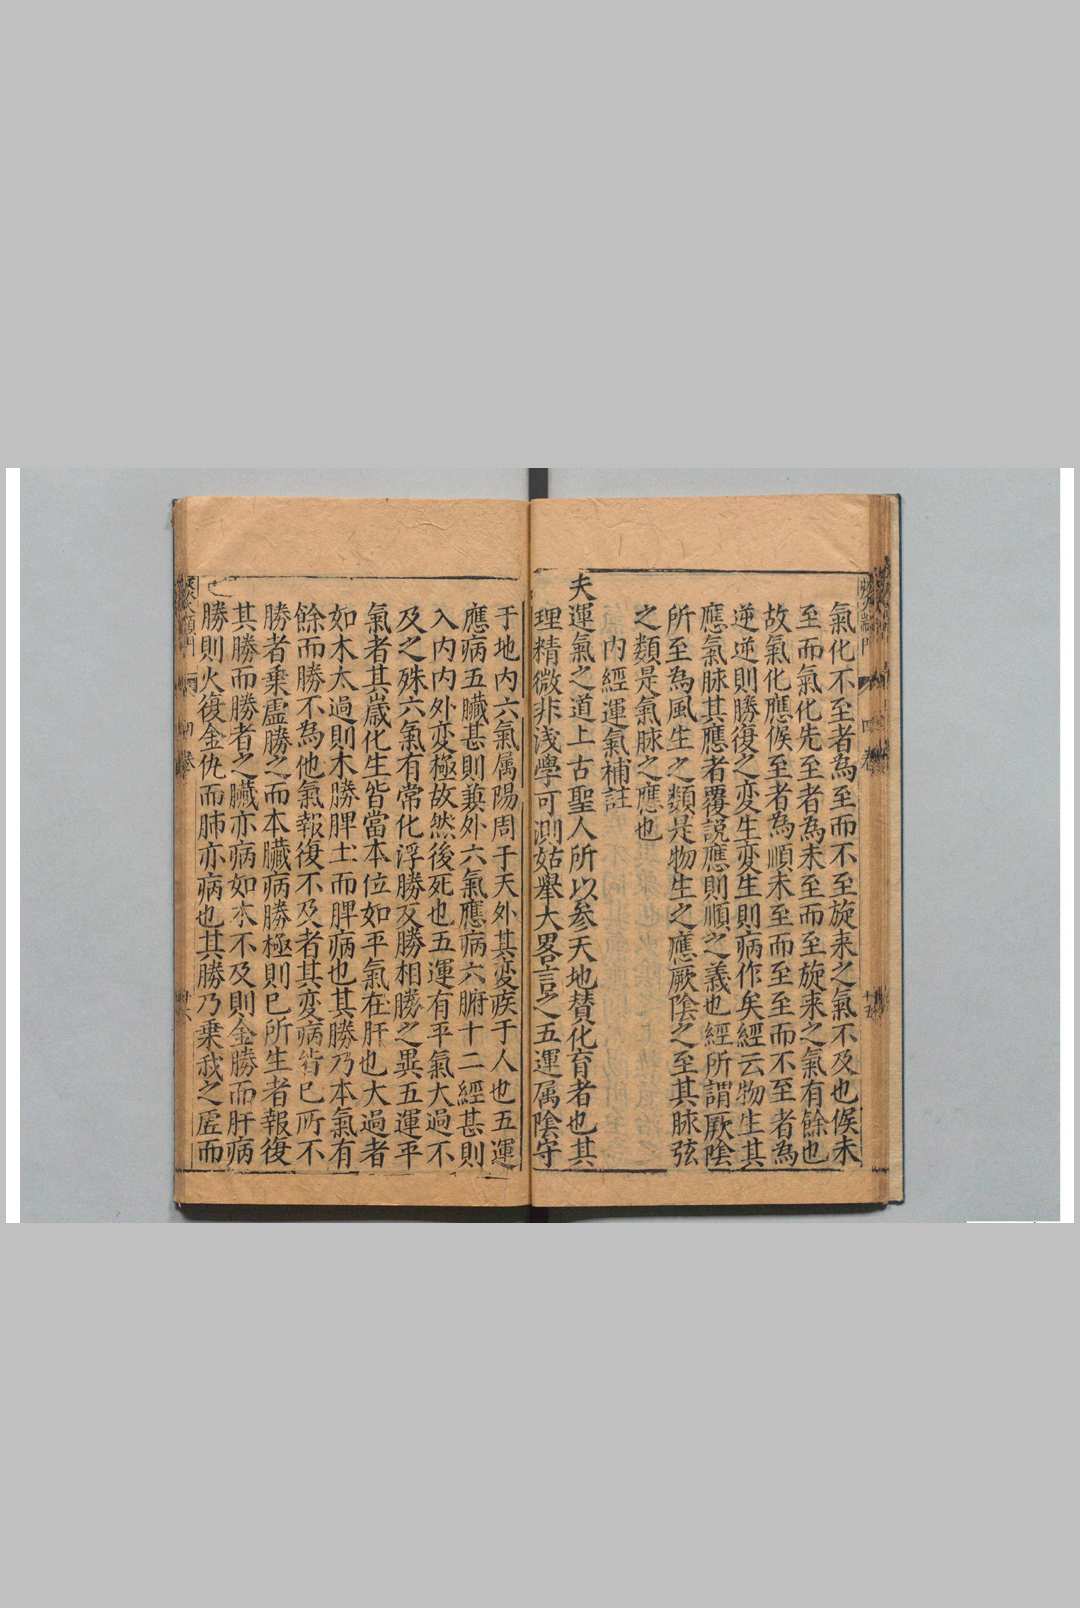 氣化不至者為至而不至旋来之氣不及也候未
至而氣化先至者為未至而至旋来之氣有餘也
故氣化應候至者為順未至而至至而不至者為
逆逆則勝復之変生変生則病作矣經云物生其
應氣脉其應者覆説應則順之義也經所謂厥陰
所至為風生之類是物生之應厥陰之至其脉弦
之類是氣脉之應也
内經運氣補註
夫運氣之道上古聖人所以参天地賛化育者也其
理精微非浅學可測姑舉大畧言之五運属陰守
于地内六氣属陽周于天外其変疾于人也五運
應病五臓甚則兼外六氣應病六腑十二經甚則
入内内外変極故然後死也五運有平氣大過不
及之殊六氣有常化浮勝反勝相勝之異五運平
氣者其歳化生皆當本位如平氣在肝也大過者
如木太過則木勝脾土而脾病也其勝乃本氣有
餘而勝不為他氣報復不及者其変病皆已所不
勝者乗虚勝之而本臓病勝極則已所生者報復
其勝而勝者之臓亦病如木不及則金勝而肝病
勝則火復金仇而肺亦病也其勝乃乗我之虚而
已
四卷
十五
四卷
十六